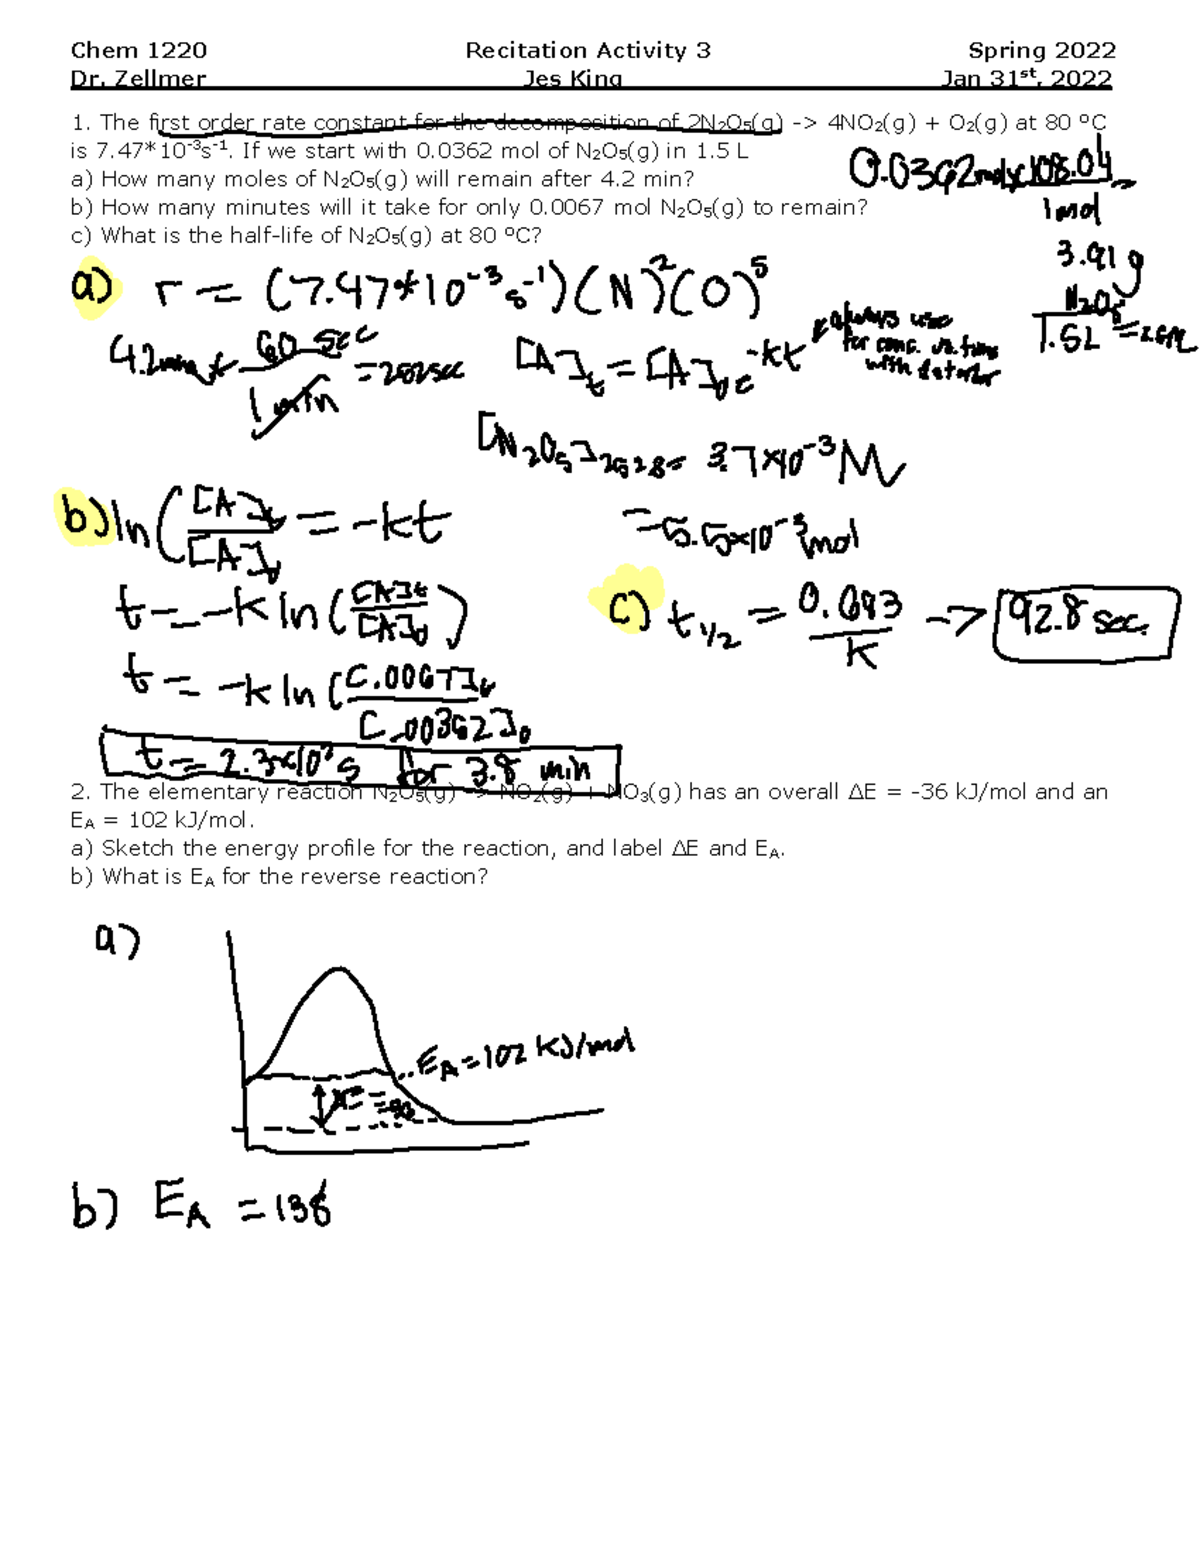 Chem 1220 Recitation Activity 3 Spring 2022
Dr. Zellmer Jes King Jan 31st, 2022
1. The first order rate constant for the decomposition of 2N₂O₅(g) -> 4NO₂(g) + O₂(g) at 80 ºC
is 7.47*10⁻³s⁻¹. If we start with 0.0362 mol of N₂O₅(g) in 1.5 L
a) How many moles of N₂O₅(g) will remain after 4.2 min?
b) How many minutes will it take for only 0.0067 mol N₂O₅(g) to remain?
c) What is the half-life of N₂O₅(g) at 80 ºC?
0.0362mol x 108.04
1 mol
3.91 g
N₂O₅
1.5L
a) r = (7.47*10⁻³ s⁻¹)(N)²(O)⁵
4.2min x 60 sec = 252sec
1 min
[A]t = [A]₀e^-kt
always use
for conc. vs. time
with
[N₂O₅]₂₅₂ₛ = 3.7x10⁻³M
= 5.5x10⁻³mol
b) ln([A]t = -kt
[A]₀
t = -k ln([A]t)
[A]₀
t = -k ln([.0067]t
[.00362]₀
t = 2.3x10² s or 3.8 min
c) t 1/2 = 0.693 -> 92.8 sec.
K
2. The elementary reaction N₂O₅(g) -> NO₂(g) + NO₃(g) has an overall ΔE = -36 kJ/mol and an
EA = 102 kJ/mol.
a) Sketch the energy profile for the reaction, and label ΔE and EA.
b) What is EA for the reverse reaction?
a)
EA = 102 kJ/mol
b) EA = 138